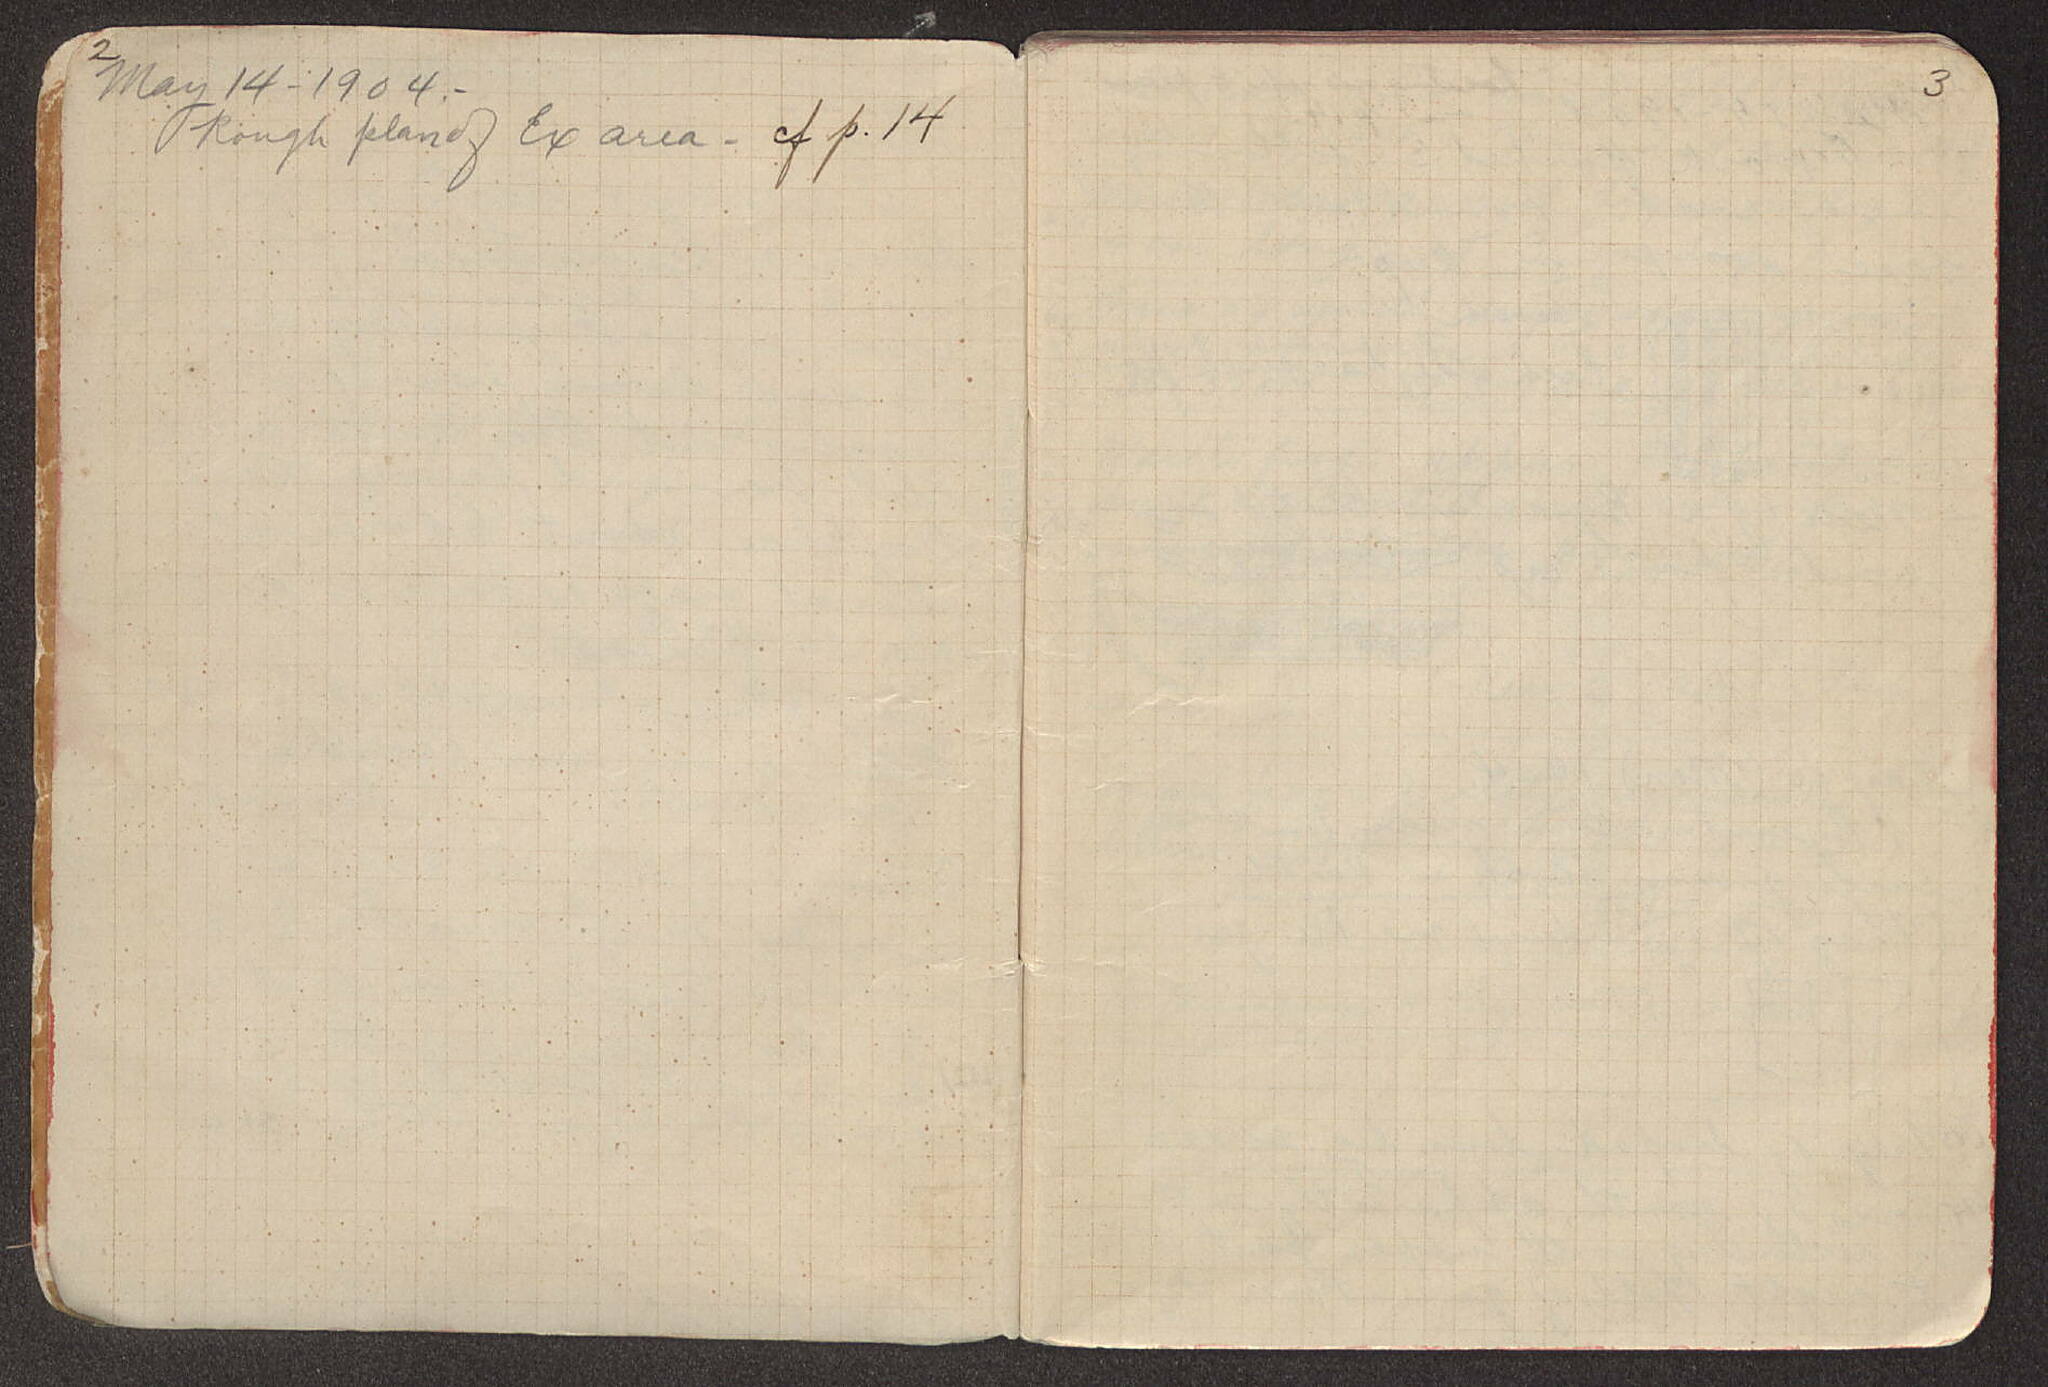 2
May 14 - 1904. -
Rough plan of Ex area - cf p. 14
3